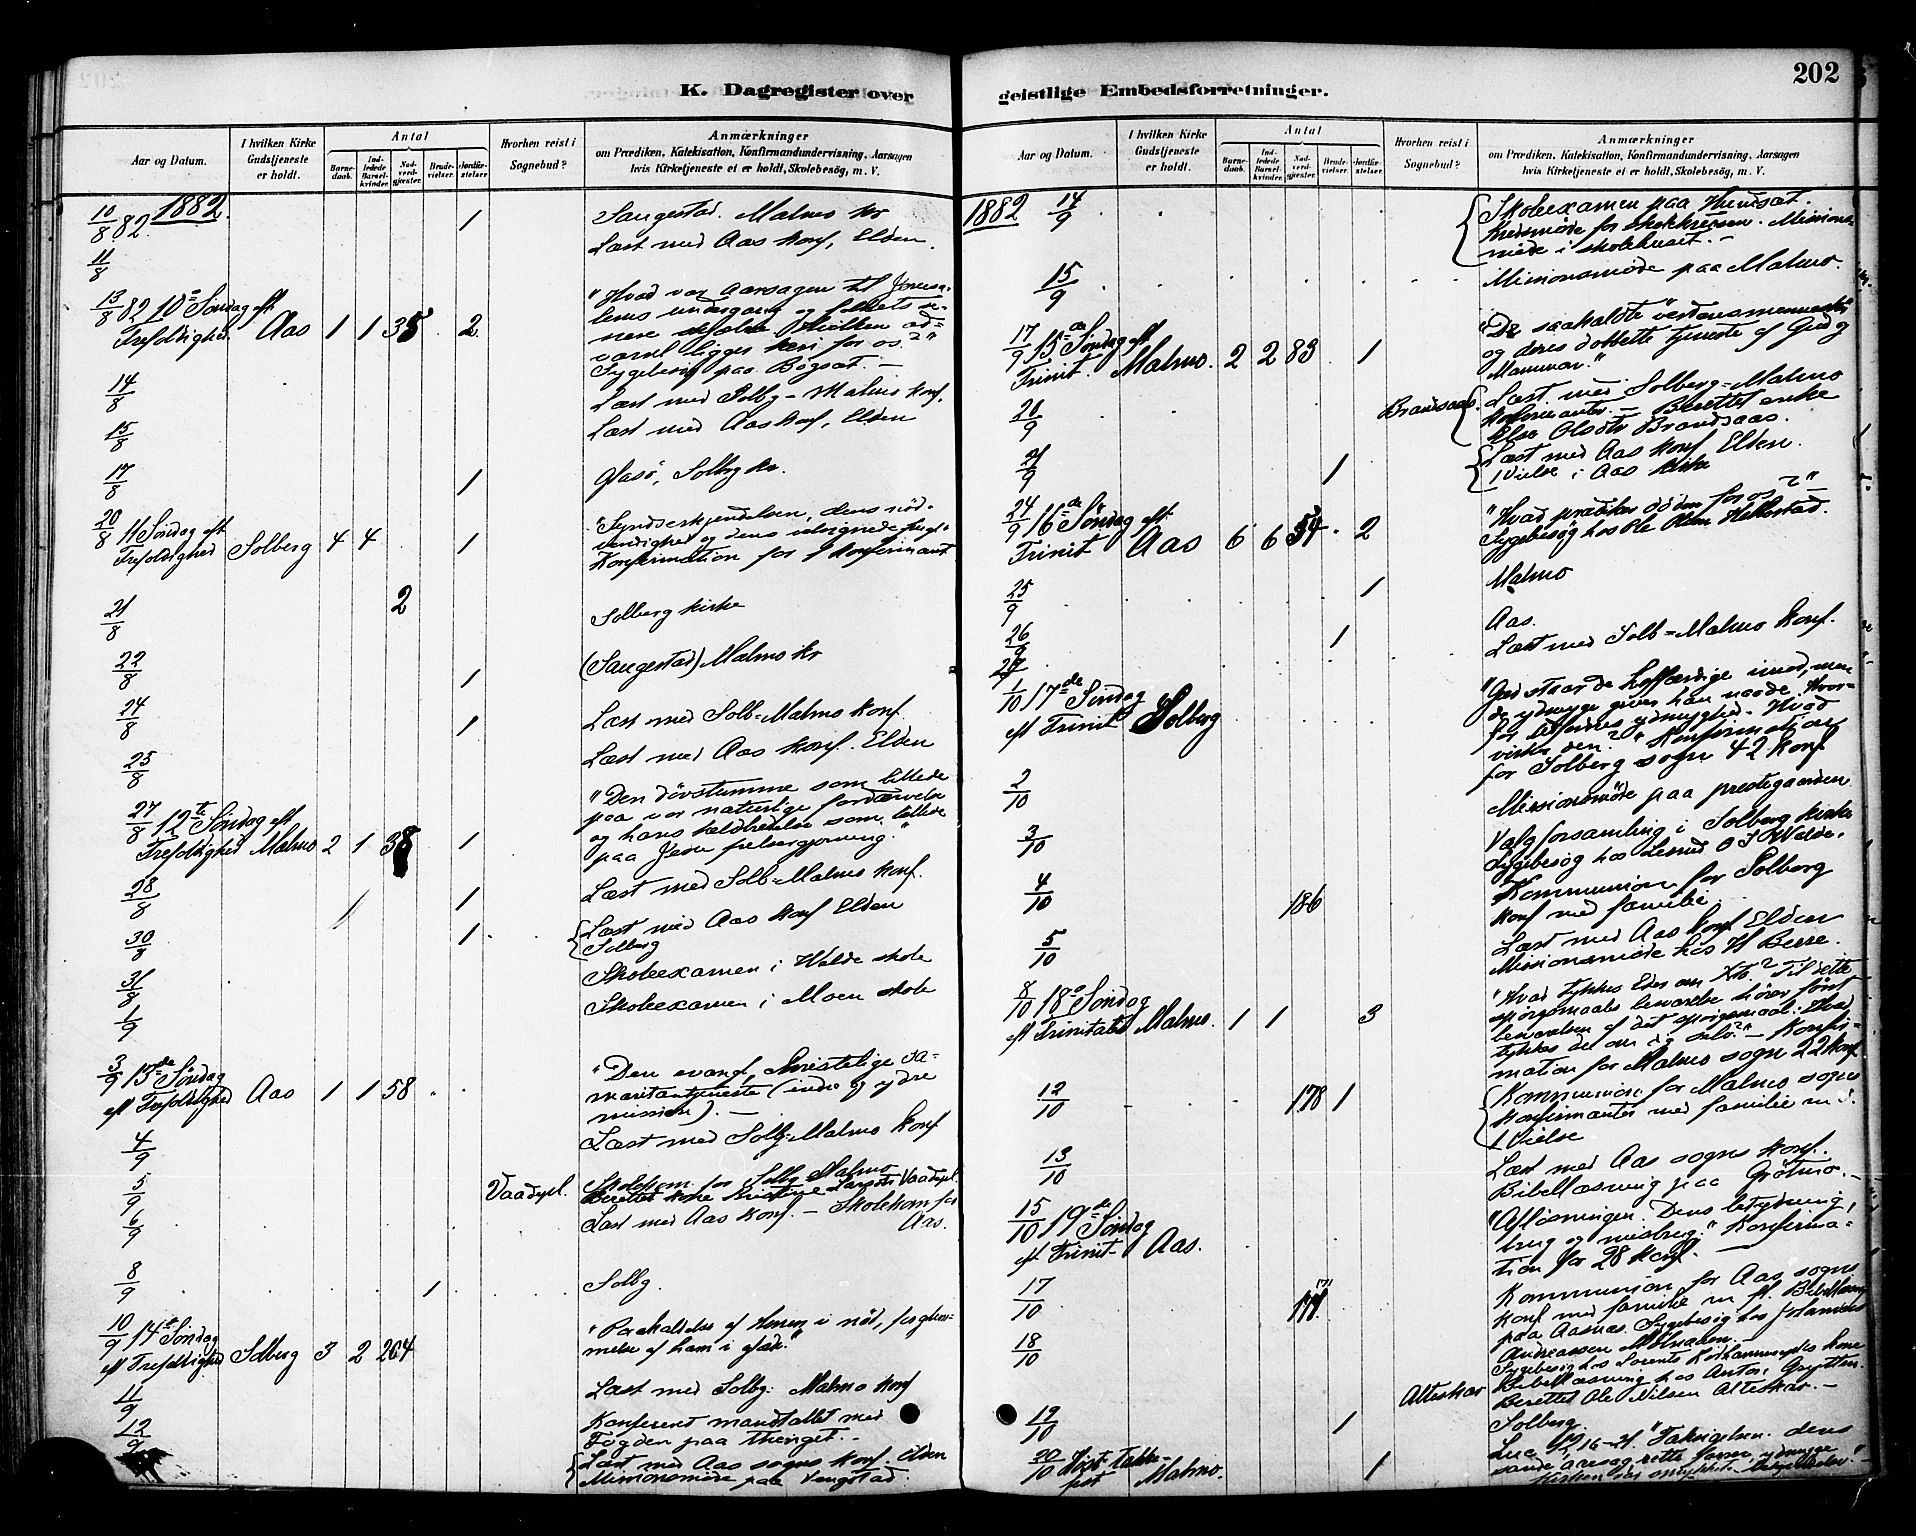 202
K. Dagregister over
Aar og Datum.
I hvilken Kirke Gudstjeneste er holdt.
Antal
Barnedaab.
Indledede Barselkvinder.
Nadverdgjester.
Brudevielser.
Jordfæstelser.
Hvorhen reist i Sognebud?
Anmærkninger
om Prædiken, Katekisation, Konfirmandundervisning, Aarsagen
hvis Kirketjeneste ei er holdt, Skolebesög, m. V.
10/8 82 1882. 1 Sangestad. Malmo kr
11/8 Læst med Aas konf, Elden.
13/8 82 10de Søndag eft
Trefoldighed Aas 1 1 35 2
"Hvad var aarsagen til Jerusa-
lems undergang og folkets se-
nere skjæbne. Hvilken ad-
varsel ligger heri for os?"
Sygebesög paa Bøgsæt. —
14/8 Læst med Solbg - Malmo konf.
15/8 Læst med Aas konf, Elden
17/8 1 Glasö, Solbg kr.
20/8 11 Søndag eft
Trefoldighed Solberg 4 4 1
"Syndserkjendelsen, dens nöd-
vendighed og dens velsignede frugt"
Konfirmation for 1 konfirmant
21/8 2 Solberg kirke
22/8 1 (Sangestad) Malmo kr
24/8 1 Læst med Solb-Malmo konf
25/8 Læst med Aas konf. Elden
27/8 12te Søndag eft
Trefoldighed Malmo 2 1 38 1
"Den døvstumme som billede
paa vor naturlige fordærvelse
og hans helbredelse som billede
paa Jesu frelsergjerning."
28/8 1 1 Læst med Solb-Malmo konf.
30/8 1 Læst med Aas konf Elden
Solberg
31/8 Skoleexamen i Walde skole
1/9 Skoleexamen i Moen skole
3/9 13de Søndag
eft Trefoldighed Aas 1 1 58
"Den evang. kristelige sa-
maritantjeneste (indre og ydre
mission). —
4/9 Læst med Solbg-Malmo konf
5/9 Vaadspl. Skolekom for Solbg Malmo
Berettet kone Larsdtr Vaadspl.
6/9 Læst med Aas konf. — Skolekom for
Aas.
8/9 1 Solbg.
10/9 14de Søndag
eft Trefoldighed Solberg 3 2 264
"Paakaldelse af Herren i nöd, forglem-
melse af ham i glæde."
11/9 Læst med Solbg. Malmo konf
12/9 Konfereret mandtallet med
Fogden paa thinget. —
Læst med Aas sogns konf. Elden
Missionsmøde paa Vengstad
geistlige Embedsforretninger.
Aar og Datum.
I hvilken Kirke Gudstjeneste er holdt.
Antal
Barnedaab.
Indledede Barselkvinder.
Nadverdgjester.
Brudevielser.
Jordfæstelser.
Hvorhen reist i Sognebud?
Anmærkninger
om Prædiken, Katekisation, Konfirmandundervisning, Aarsagen
hvis Kirketjeneste ei er holdt, Skolebesög, m. V.
1882 14/9 Skoleexamen paa
Kredsmøde for skolekredsen. Missions-
møde i skolehuset. —
15/9 Missionsmøde paa Malmo.
17/9 15de Søndag eft
Trinit. Malmo. 2 2 83 1
"De saakaldte "verdensmennesker"
og deres dobbette tjeneste af Gud og
Mammon."
20/9 Brandsaas. Læst med Solberg-Malmo
konfirmanter — Berettet enke
Else Olsdtr Brandsaas.
21/9 1 Læst med Aas konf Elden.
1 Vielse i Aas kirke
24/9 16de Søndag eft
Trinit Aas 6 6 54 2
"Hvad prædiker døden for os?" —
Sygebesög hos Ole Olsen Hellestad.
25/9 1 Malmo
26/9 1 Aas.
27/9 Læst med Solb-Malmo konf.
1/10 17de Søndag
eft Trinit Solberg
"Gud staar de hoffærdige imod, men
de ydmyge giver han naade. Hvor-
for fordres ydmyghed. Hvad
virker den?" Konfirmation
for Solberg sogn 42 konf
2/10 Missionsmøde paa prestegaarden
3/10 Valgforsamling i Solberg kirke
Sygebesög hos
4/10 186 Kommunion for Solberg
konf med familie
5/10 Læst med Aas konf Elden
Missionsmøde hos H Berre.
8/10 18de Søndag
eft Trinitatis Malmo. 1 1 3
"Hvad tykkes Eder om Xto? Til dette
spörgsmaals besvarelse hörer först
besvarelsen af det spörgsmaal: Hvad
tykkes det om dig selv?" — Konfir-
mation for Malmo sogn 22 konf
12/10 178 1 Kommunion for Malmo sogns
konfirmanter med familie m fl.
1 Vielse
13/10 Læst med Aas sogns konf.
Bibellæsning paa Grötmo. —
15/10 19de Søndag
eft Trinit Aas.
"Aflösningen. Dens betydning,
brug og misbrug." Konfirma-
tion for 28 konf.
17/10 171 171. Kommunion for Aas sogns
konf med familie m fl. Bibellæsning
paa Aasnæs. Sygebesög hos Johannes
18/10 Andreassen
Sygebesög hos kone
Bibellæsning hos Anton Grytten.
Alteskar Berettet Ole Nilsen Alteskar. —
19/10 1 Solberg.
20/10 Höst-takke-
fest Malmo. 1
Luc 12, 16-21. Taksigelsen. dens
sande aarsag